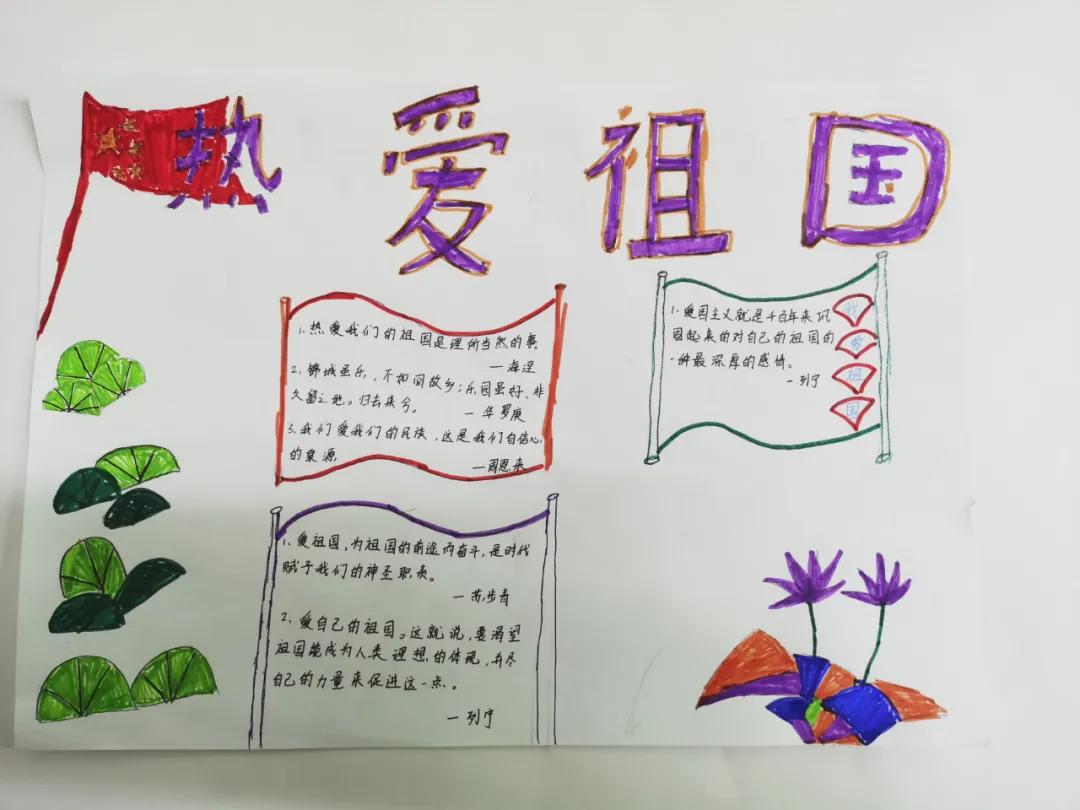 热爱祖国
1、热爱我们的祖国是理所当然的事。
—海涅
2、锦城虽乐，不如回故乡；乐园虽好，非
久留之地。归去来兮。
—华罗庚
3、我们爱我们的民族，这是我们自信心
的泉源
—周恩来
1、爱国主义就是千百年来巩
固起来的对自己的祖国的
一种最深厚的感情。
—列宁
我
爱
祖
国
1、爱祖国，为祖国的前途而奋斗，是时代
赋予我们的神圣职责。
—苏步青
2、爱自己的祖国。这就说，要渴望
祖国能成为人类理想的体现，并尽
自己的力量来促进这一点。
—列宁